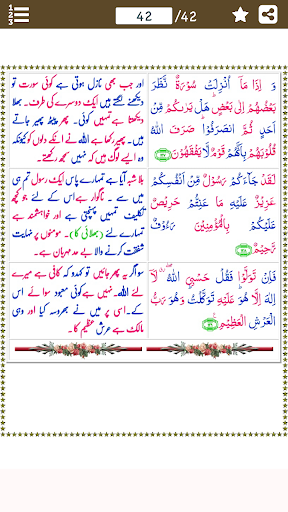 42 /42
وَ اِذَا مَاۤ اُنْزِلَتْ سُوْرَةٌ نَّظَرَ
بَعْضُهُمْ اِلٰى بَعْضٍ هَلْ يَرٰىكُمْ مِّنْ
اَحَدٍ ثُمَّ انْصَرَفُوْا صَرَفَ اللّٰهُ
قُلُوْبَهُمْ بِاَنَّهُمْ قَوْمٌ لَّا يَفْقَهُوْنَ
اور جب بھی نازل ہوتی ہے کوئی سورت تو
دیکھنے لگتے ہیں ایک دوسرے کی طرف۔ بھلا
دیکھتا ہے تمہیں کوئی۔ پھر پیٹھ پھیر جاتے
ہیں۔ پھیر رکھا ہے اللہ نے انکے دلوں کو کیونکہ
وہ ایسے لوگ ہیں کہ نہیں سمجھ رکھتے۔
لَقَدْ جَآءَكُمْ رَسُوْلٌ مِّنْ اَنْفُسِكُمْ
عَزِيْزٌ عَلَيْهِ مَا عَنِتُّمْ حَرِيْصٌ
عَلَيْكُمْ بِالْمُؤْمِنِيْنَ رَءُوْفٌ
رَّحِيْمٌ
بلا شبہ آیا ہے تمہارے پاس ایک رسول تم ہی
میں سے ۔ ناگوار ہے اس کے لئے جو کچھ
تکلیف تمہیں پہنچتی ہے اور خواہشمند ہے
تمہارے لئے (بھلائی کا)۔ مومنوں پر نہایت
شفقت کرنے والا بے حد مہربان ہے۔
فَاِنْ تَوَلَّوْا فَقُلْ حَسْبِيَ اللّٰهُ لَاۤ
اِلٰهَ اِلَّا هُوَ عَلَيْهِ تَوَكَّلْتُ وَ هُوَ رَبُّ
الْعَرْشِ الْعَظِيْمِ
سو اگر یہ پھر جائیں تو کہدو کہ کافی ہے میرے
لئے اللہ۔ نہیں ہے کوئی معبود سوائے اس
کے۔ اسی پر میں نے بھروسہ کیا اور وہی
مالک ہے عرش عظیم کا۔